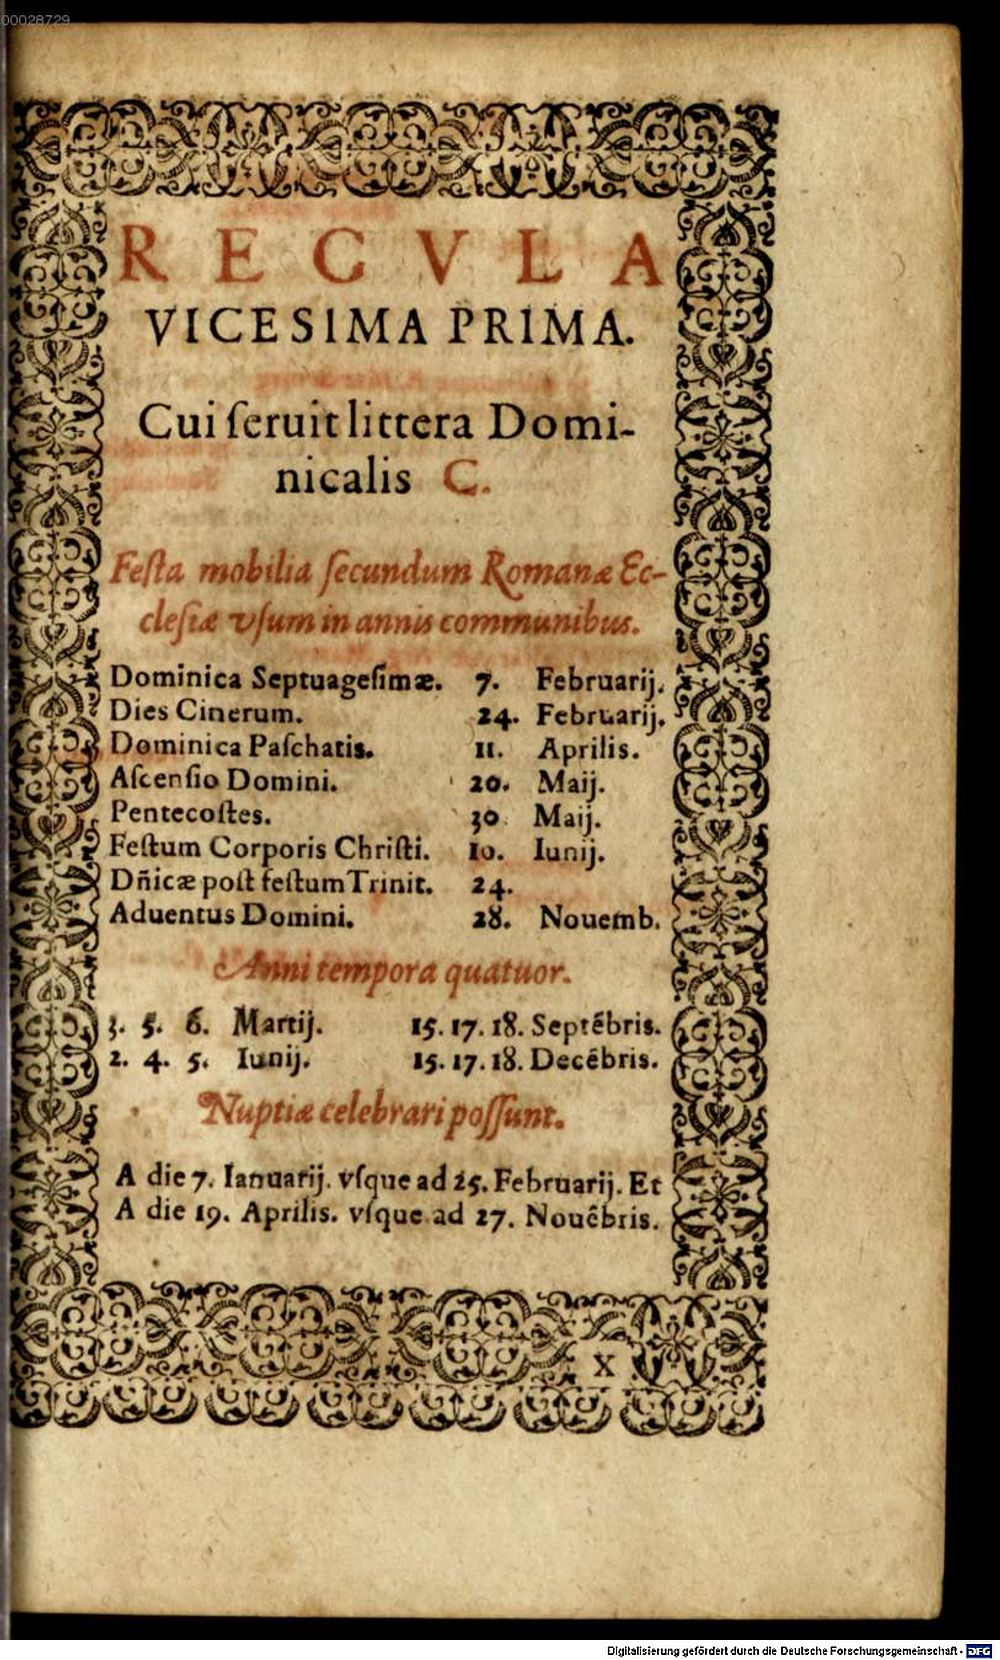 00028729
REGVLA
VICESIMA PRIMA.
Cui ſeruit littera Domi-
nicalis C.
Feſta mobilia ſecundum Romanæ Ec-
cleſiæ vſum in annis communibus.
Dominica Septuageſimæ. 7. Februarij.
Dies Cinerum. 24. Februarij.
Dominica Paſchatis. 11. Aprilis.
Aſcenſio Domini. 20. Maij.
Pentecoſtes. 30. Maij.
Feſtum Corporis Chriſti. 10. Iunij.
Dn̄icæ poſt feſtum Trinit. 24.
Aduentus Domini. 28. Nouemb.
Anni tempora quatuor.
3. 5. 6. Martij. 15. 17. 18. Septēbris.
2. 4. 5. Iunij. 15. 17. 18. Decēbris.
Nuptiæ celebrari poſſunt.
A die 7. Ianuarij. vſque ad 25. Februarij. Et
A die 19. Aprilis. vſque ad 27. Nouēbris.
X
Digitalisierung gefördert durch die Deutsche Forschungsgemeinschaft - DFG